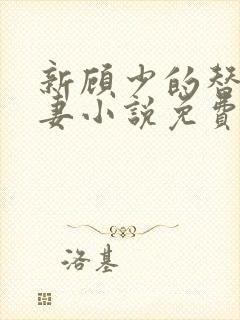 新顾少的替
妻小說免費
洛基